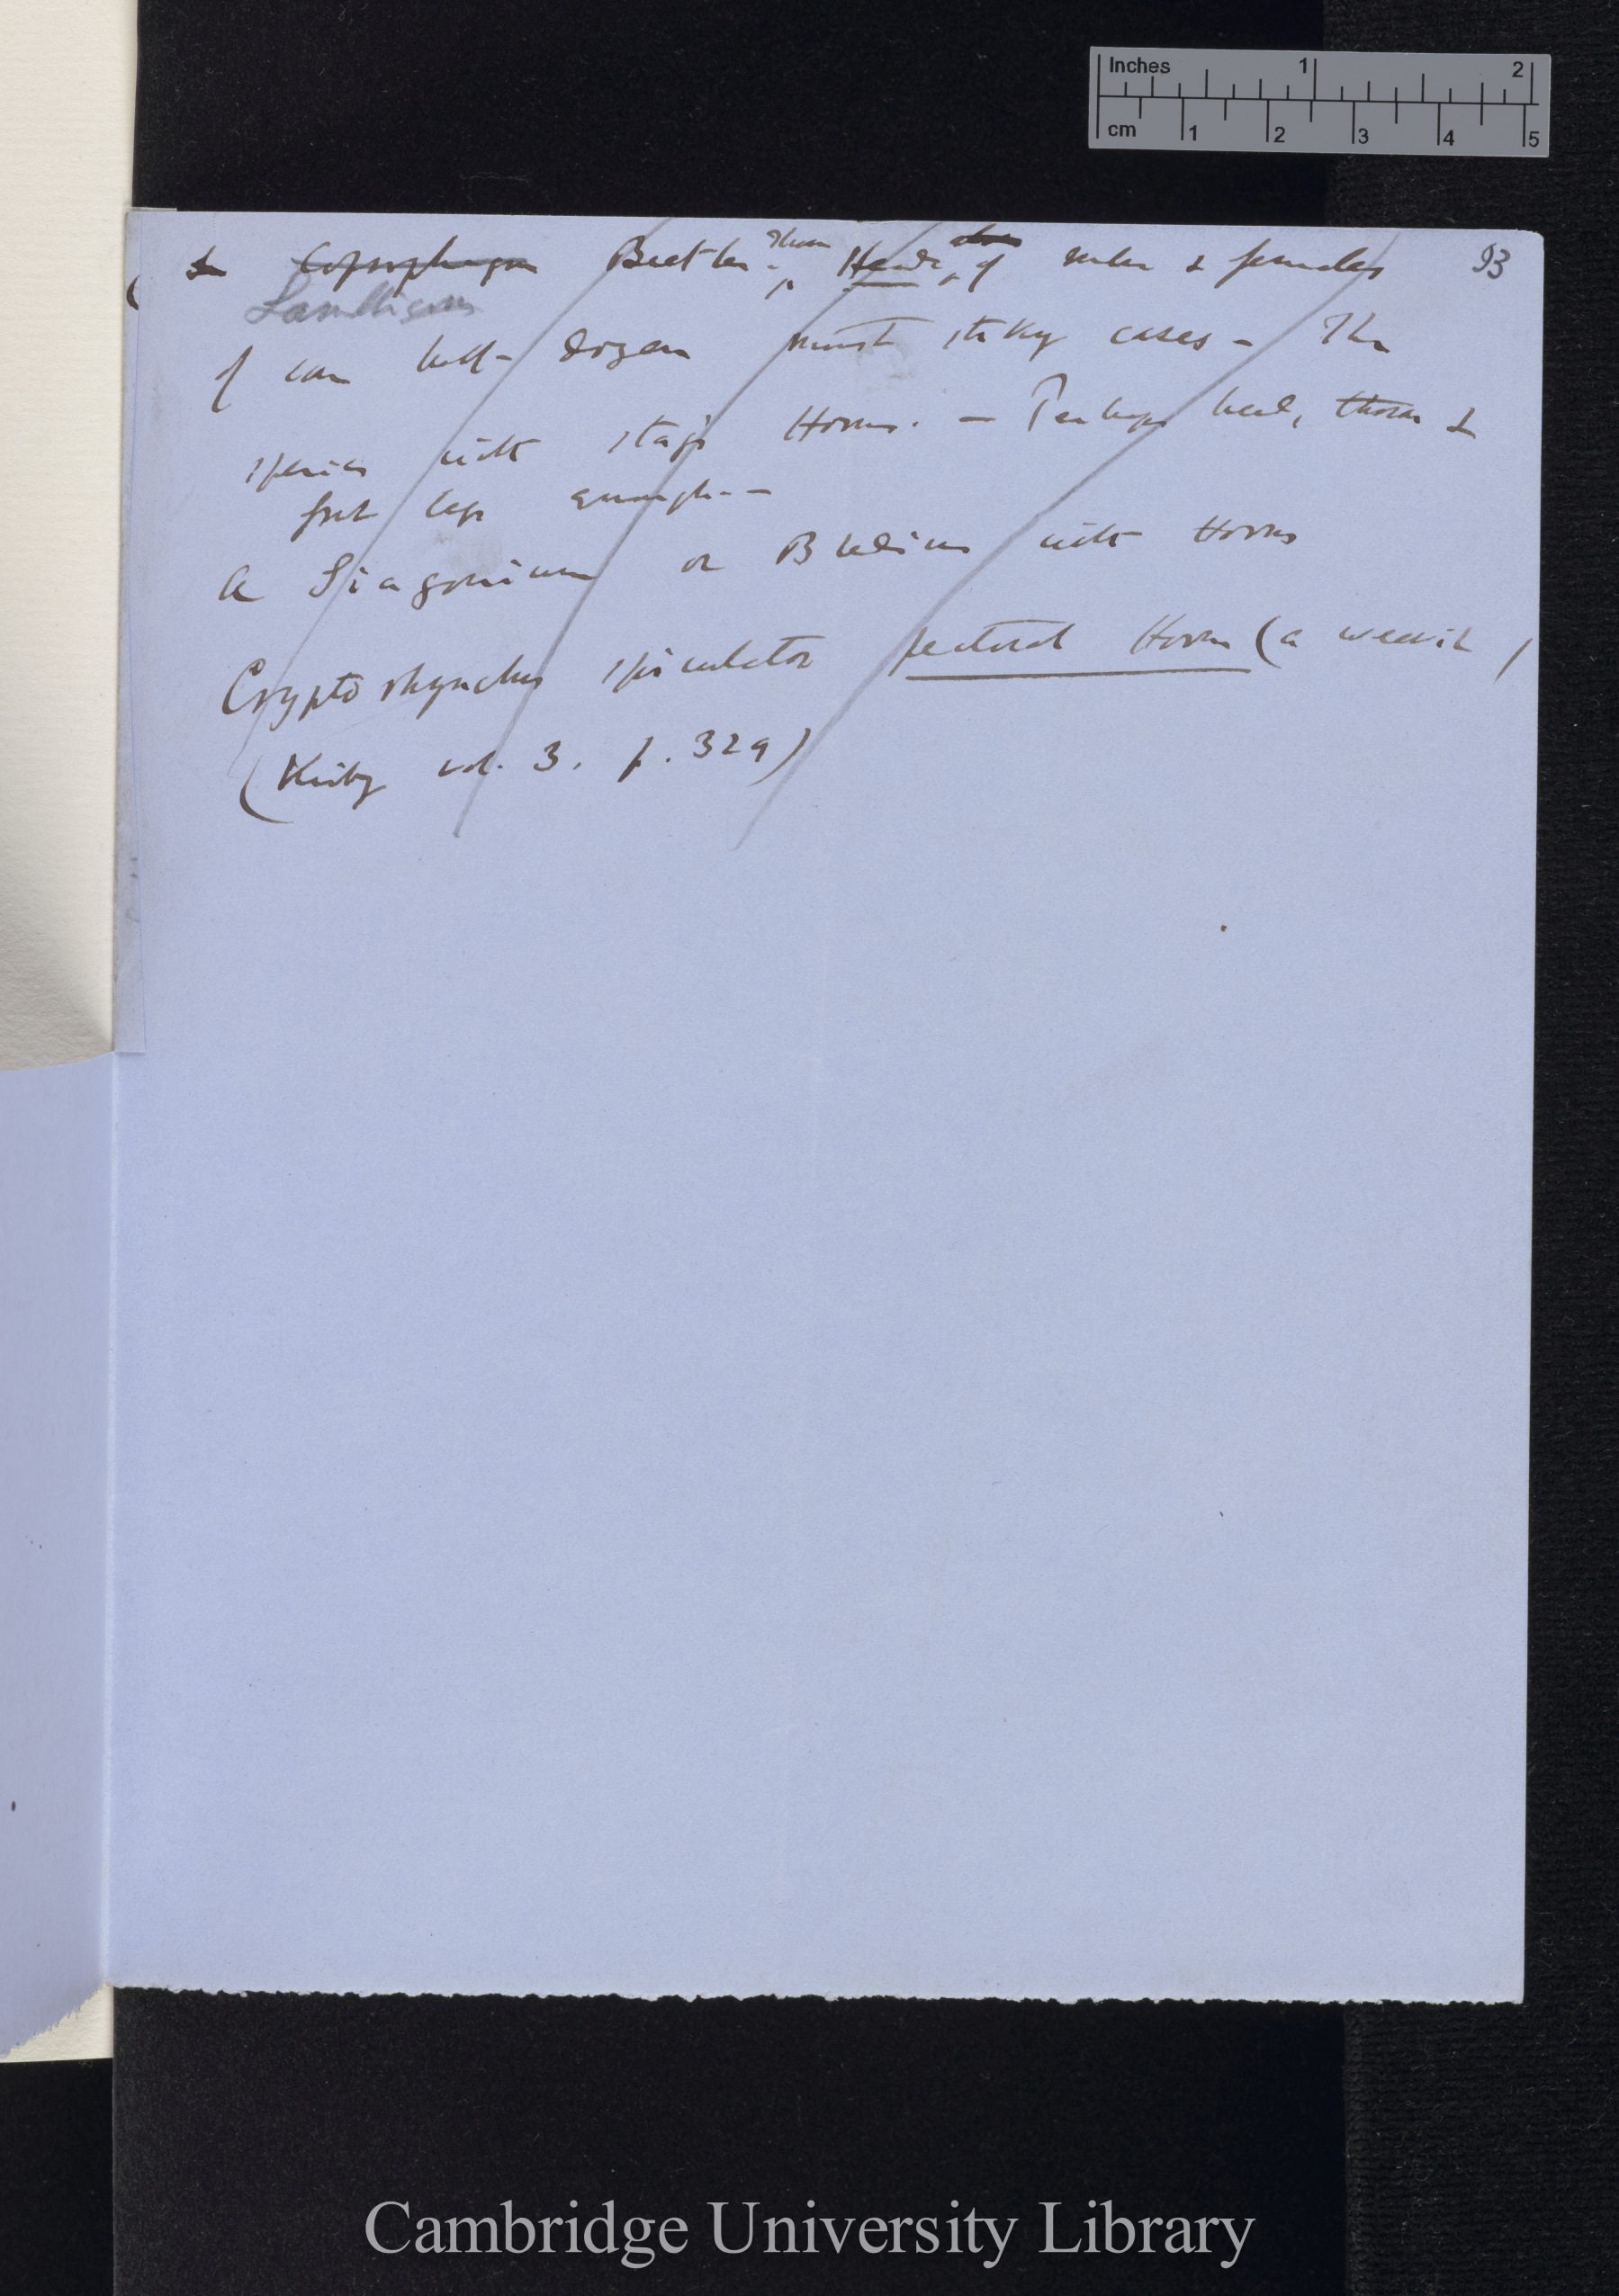 Inches 1 2
cm 1 2 3 4 5
93
Coprophagous Beetles. Heads of males & females
Lamellicorn
of some half-dozen most striking cases – The
species with stag's Horns. – Perhaps head, thorax &
front legs enough. –
A Siagonium or Bledius with Horns
Cryptorhynchus spiculator pectoral Horns (a weevil)
(Kirby vol. 3. p. 329)
Cambridge University Library